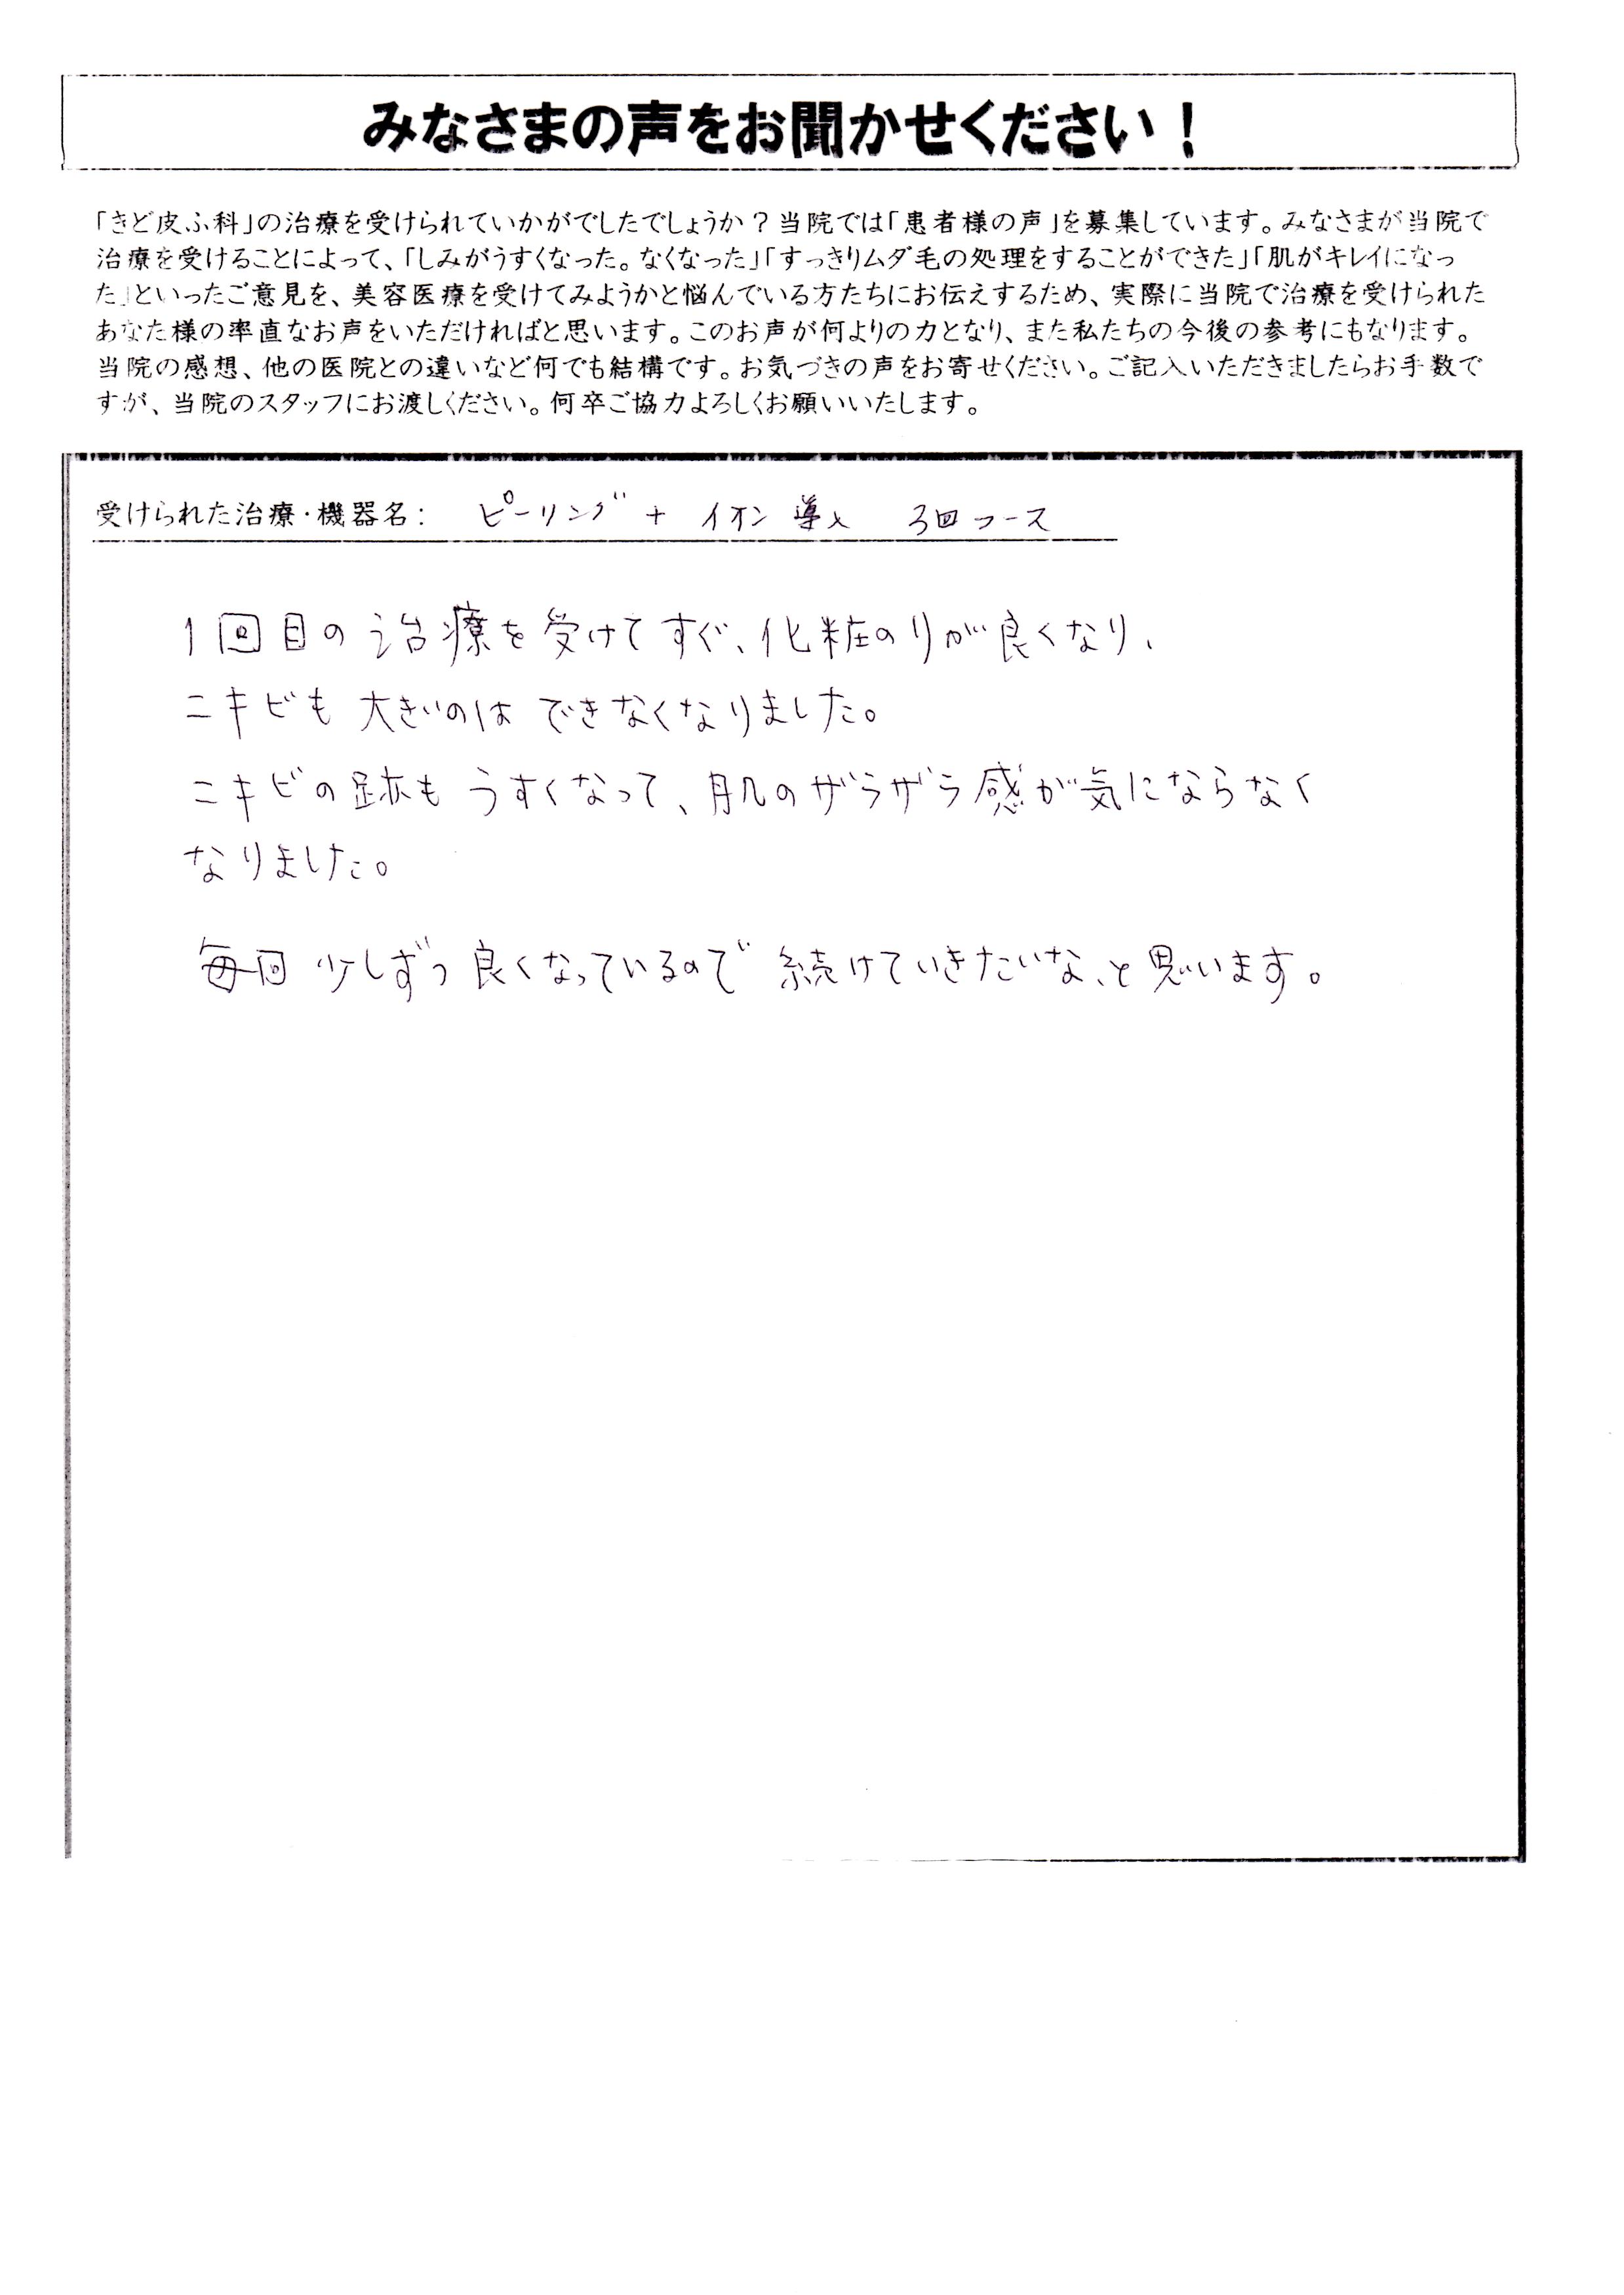 みなさまの声をお聞かせください！
「きど皮ふ科」の治療を受けられていかがでしたでしょうか？当院では「患者様の声」を募集しています。みなさまが当院で
治療を受けることによって、「しみがうすくなった。なくなった」「すっきりムダ毛の処理をすることができた」「肌がキレイになっ
た」といったご意見を、美容医療を受けてみようかと悩んでいる方たちにお伝えするため、実際に当院で治療を受けられた
あなた様の率直なお声をいただければと思います。このお声が何よりの力となり、また私たちの今後の参考にもなります。
当院の感想、他の医院との違いなど何でも結構です。お気づきの声をお寄せください。ご記入いただきましたらお手数で
すが、当院のスタッフにお渡しください。何卒ご協力よろしくお願いいたします。
受けられた治療・機器名： ピーリング + イオン導入 3回コース
1回目の治療を受けてすぐ、化粧のりが良くなり、
ニキビも大きいのはできなくなりました。
ニキビの跡もうすくなって、肌のザラザラ感が気にならなく
なりました。
毎回少しずつ良くなっているので続けていきたいな、と思います。